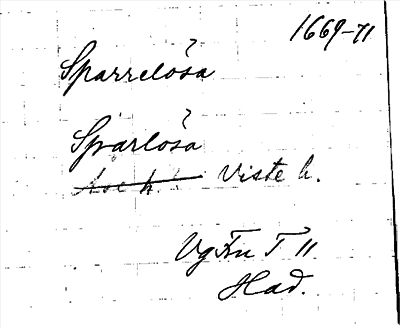 1669-71
Sparrelösa
Sparlösa
Viste h.
VgFru T 11
Had.